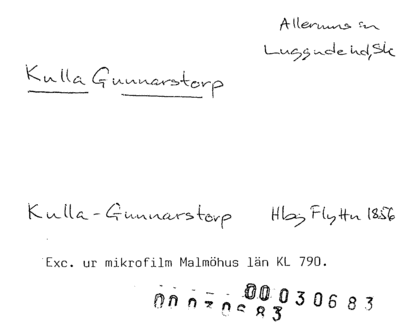 Allerums sn
Luggude hd, Sk
Kulla Gunnarstorp
Kulla-Gunnarstorp Hbg Flyttn 1856
Exc. ur mikrofilm Malmöhus län KL 790.
00030683
00030683